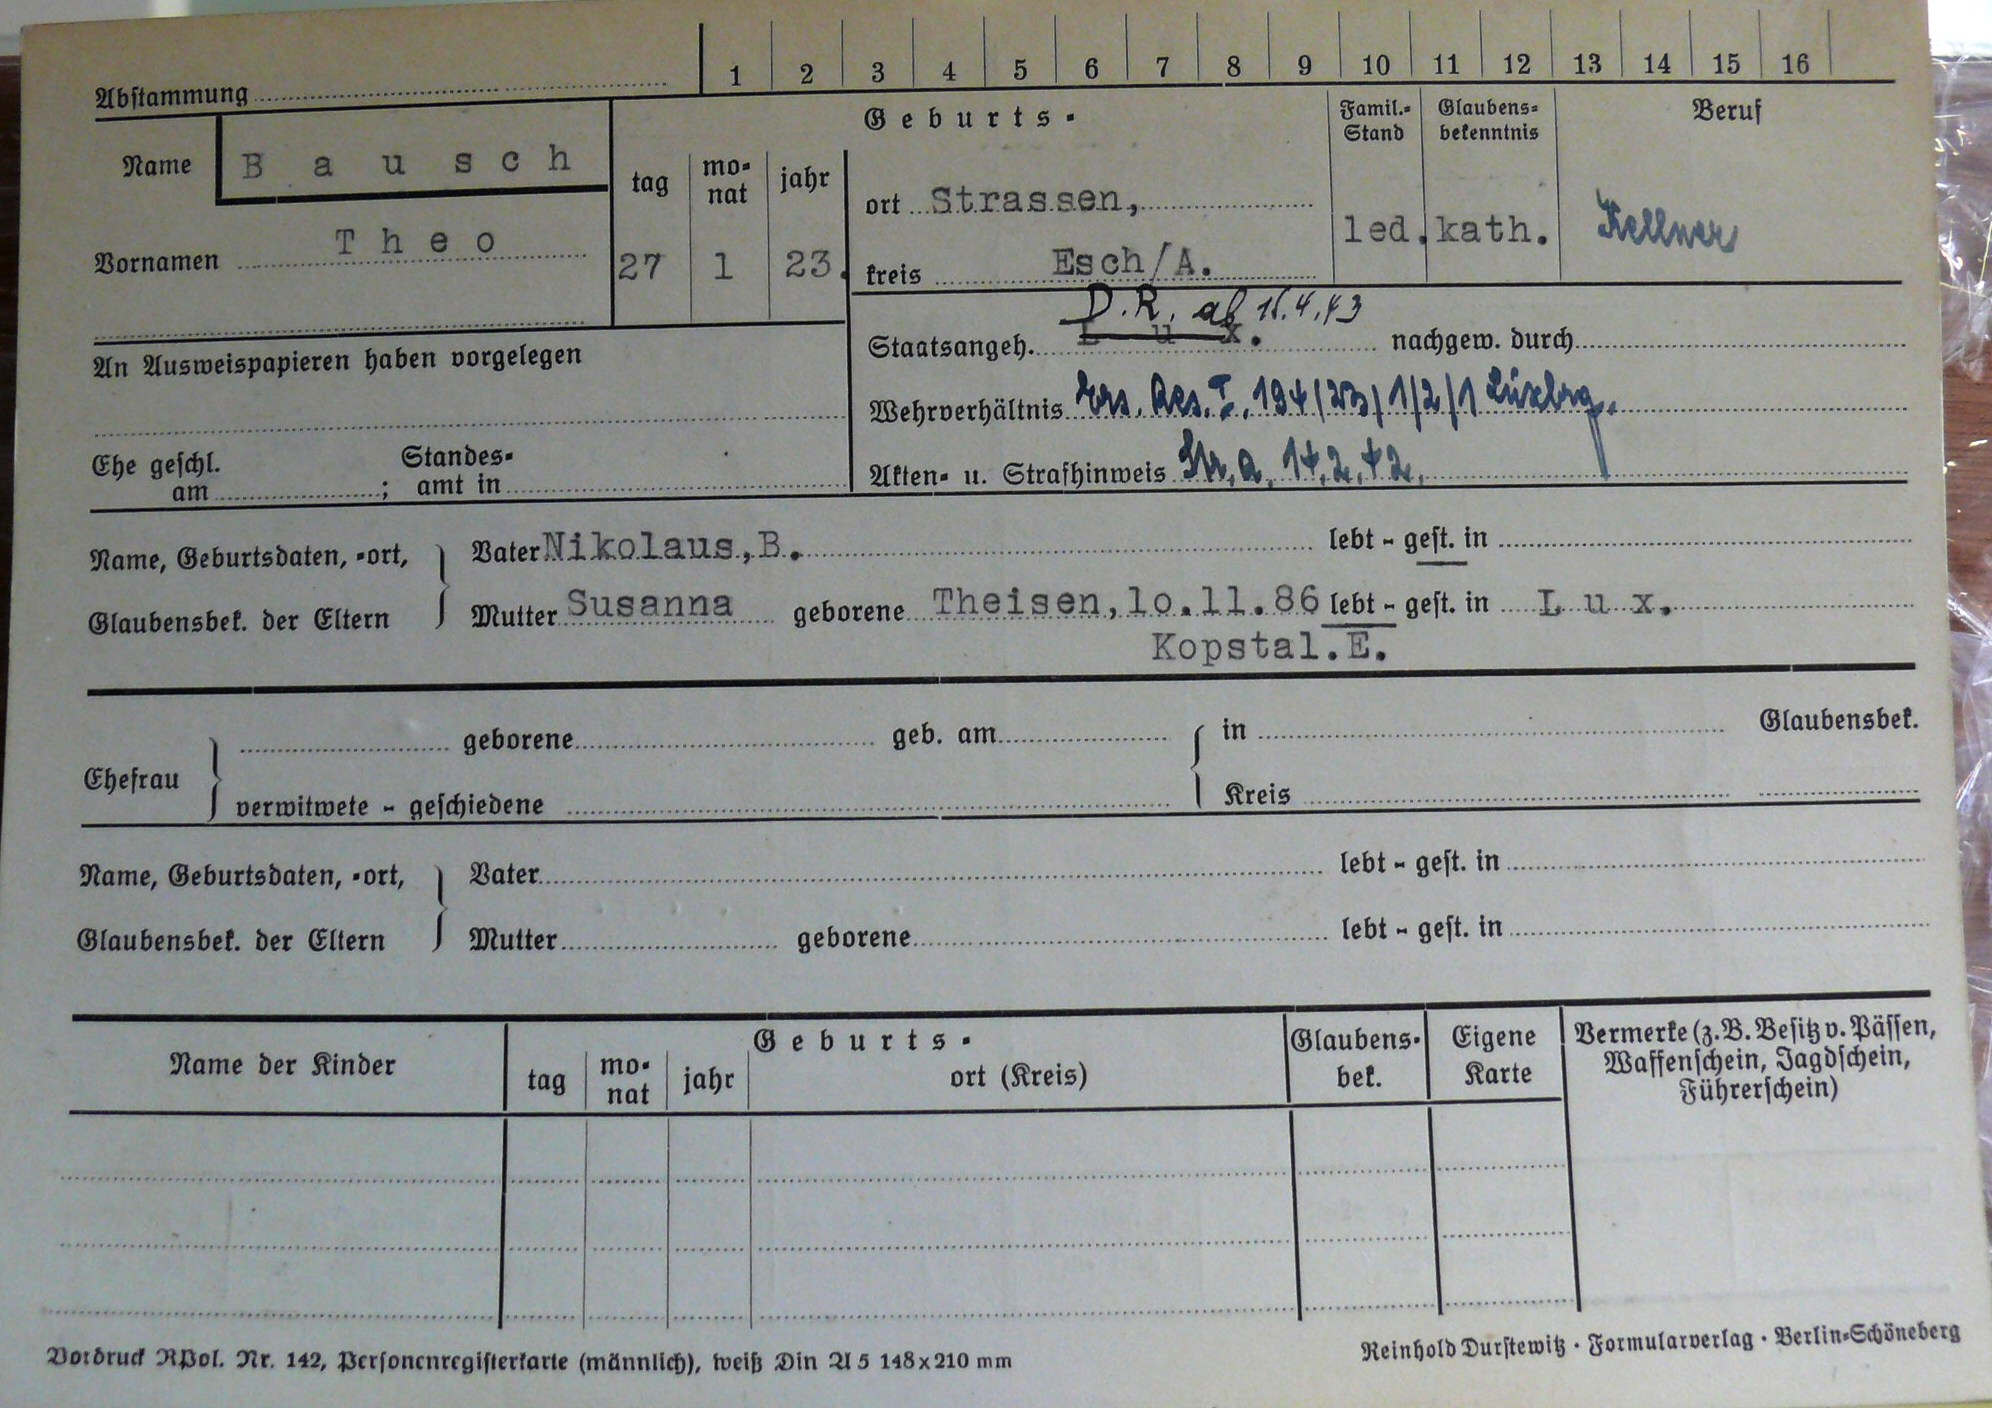 1 2 3 4 5 6 7 8 9 10 11 12 13 14 15 16
Abstammung
Name B a u s c h
Vornamen T h e o
Geburts-
tag monat jahr
27 1 23.
ort Strassen,
kreis Esch/A.
Famil.-Stand led.
Glaubensbekenntnis kath.
Beruf Kellner
An Ausweispapieren haben vorgelegen
D.R. ab
Staatsangeh. L u x. nachgew. durch
Wehrverhältnis Ers. Res. I, 194/23/1/2/1 Luxbrg.
Akten- u. Strafhinweis Str. a. 14.2.42.
Ehe geschl. am ; Standesamt in
Name, Geburtsdaten, -ort,
Glaubensbek. der Eltern
Vater Nikolaus,B. lebt - gest. in
Mutter Susanna geborene Theisen,lo.11.86 lebt - gest. in L u x.
Kopstal.E.
Ehefrau
geborene geb. am in Glaubensbek.
verwitwete - geschiedene Kreis
Name, Geburtsdaten, -ort,
Glaubensbek. der Eltern
Vater lebt - gest. in
Mutter geborene lebt - gest. in
Name der Kinder
Geburts-
tag monat jahr ort (Kreis)
Glaubens-
bek.
Eigene
Karte
Vermerke (z.B. Besitz v. Pässen,
Waffenschein, Jagdschein,
Führerschein)
Vordruck RPol. Nr. 142, Personenregisterkarte (männlich), weiß Din A 5 148x210 mm
Reinhold Durstewitz · Formularverlag · Berlin-Schöneberg